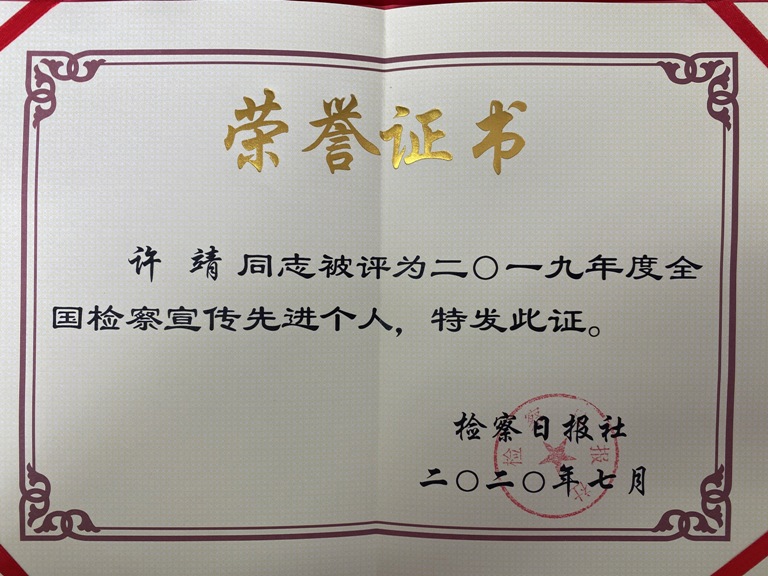 荣誉证书
许 靖 同志被评为二〇一九年度全
国检察宣传先进个人，特发此证。
检察日报社
二〇二〇年七月